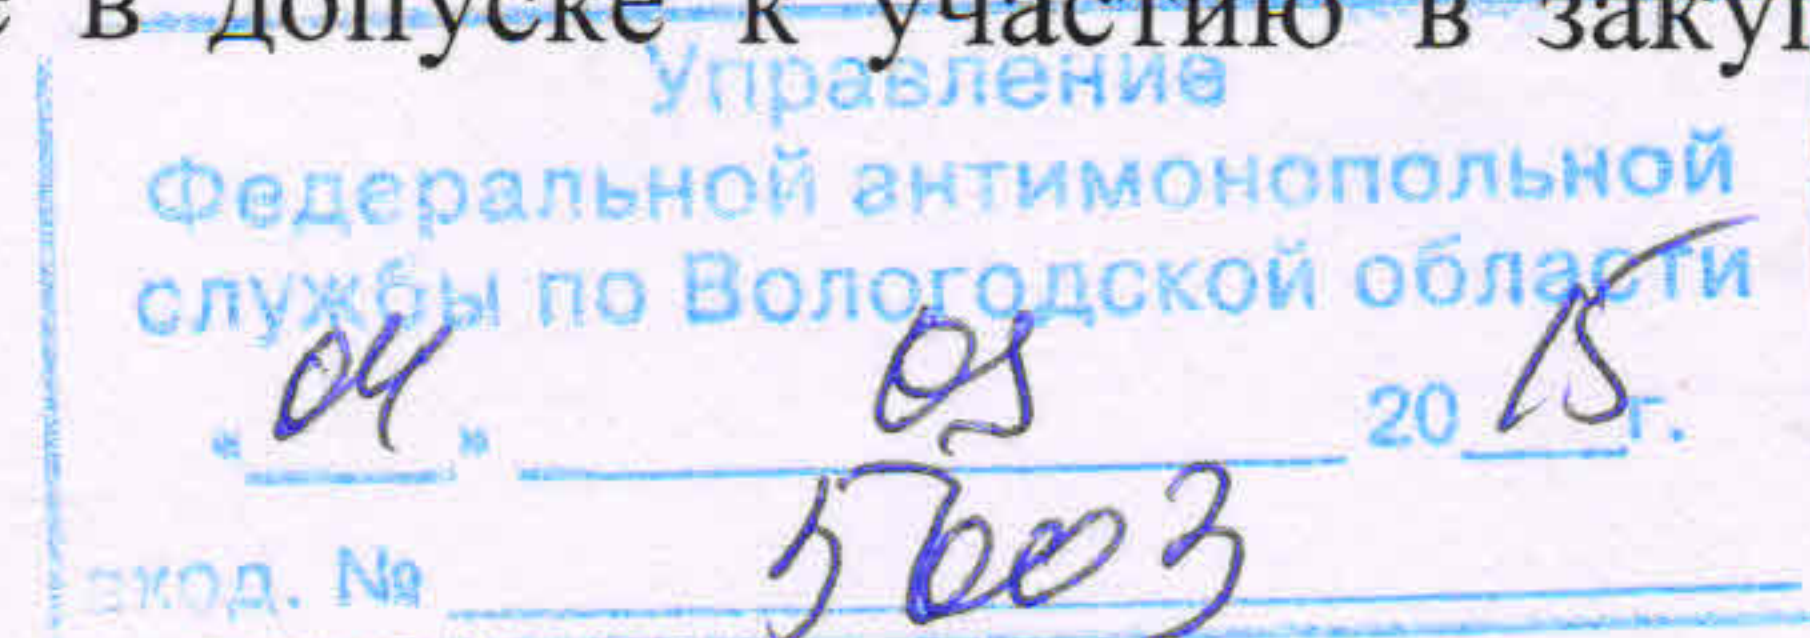 в допуске к участию в заку
Управление
Федеральной антимонопольной
службы по Вологодской области
« 04 » 05 20 15 г.
вход. №